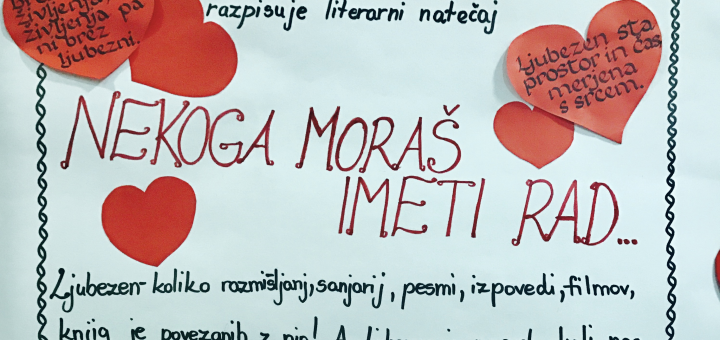 življenja,
življenja pa
ni brez
ljubezni.
razpisuje literarni natečaj
Ljubezen sta
prostor in čas
merjena
s srcem.
NEKOGA MORAŠ
IMETI RAD...
Ljubezen- koliko razmišljanj, sanjarij, pesmi, izpovedi, filmov,
knjig je povezanih z njo!